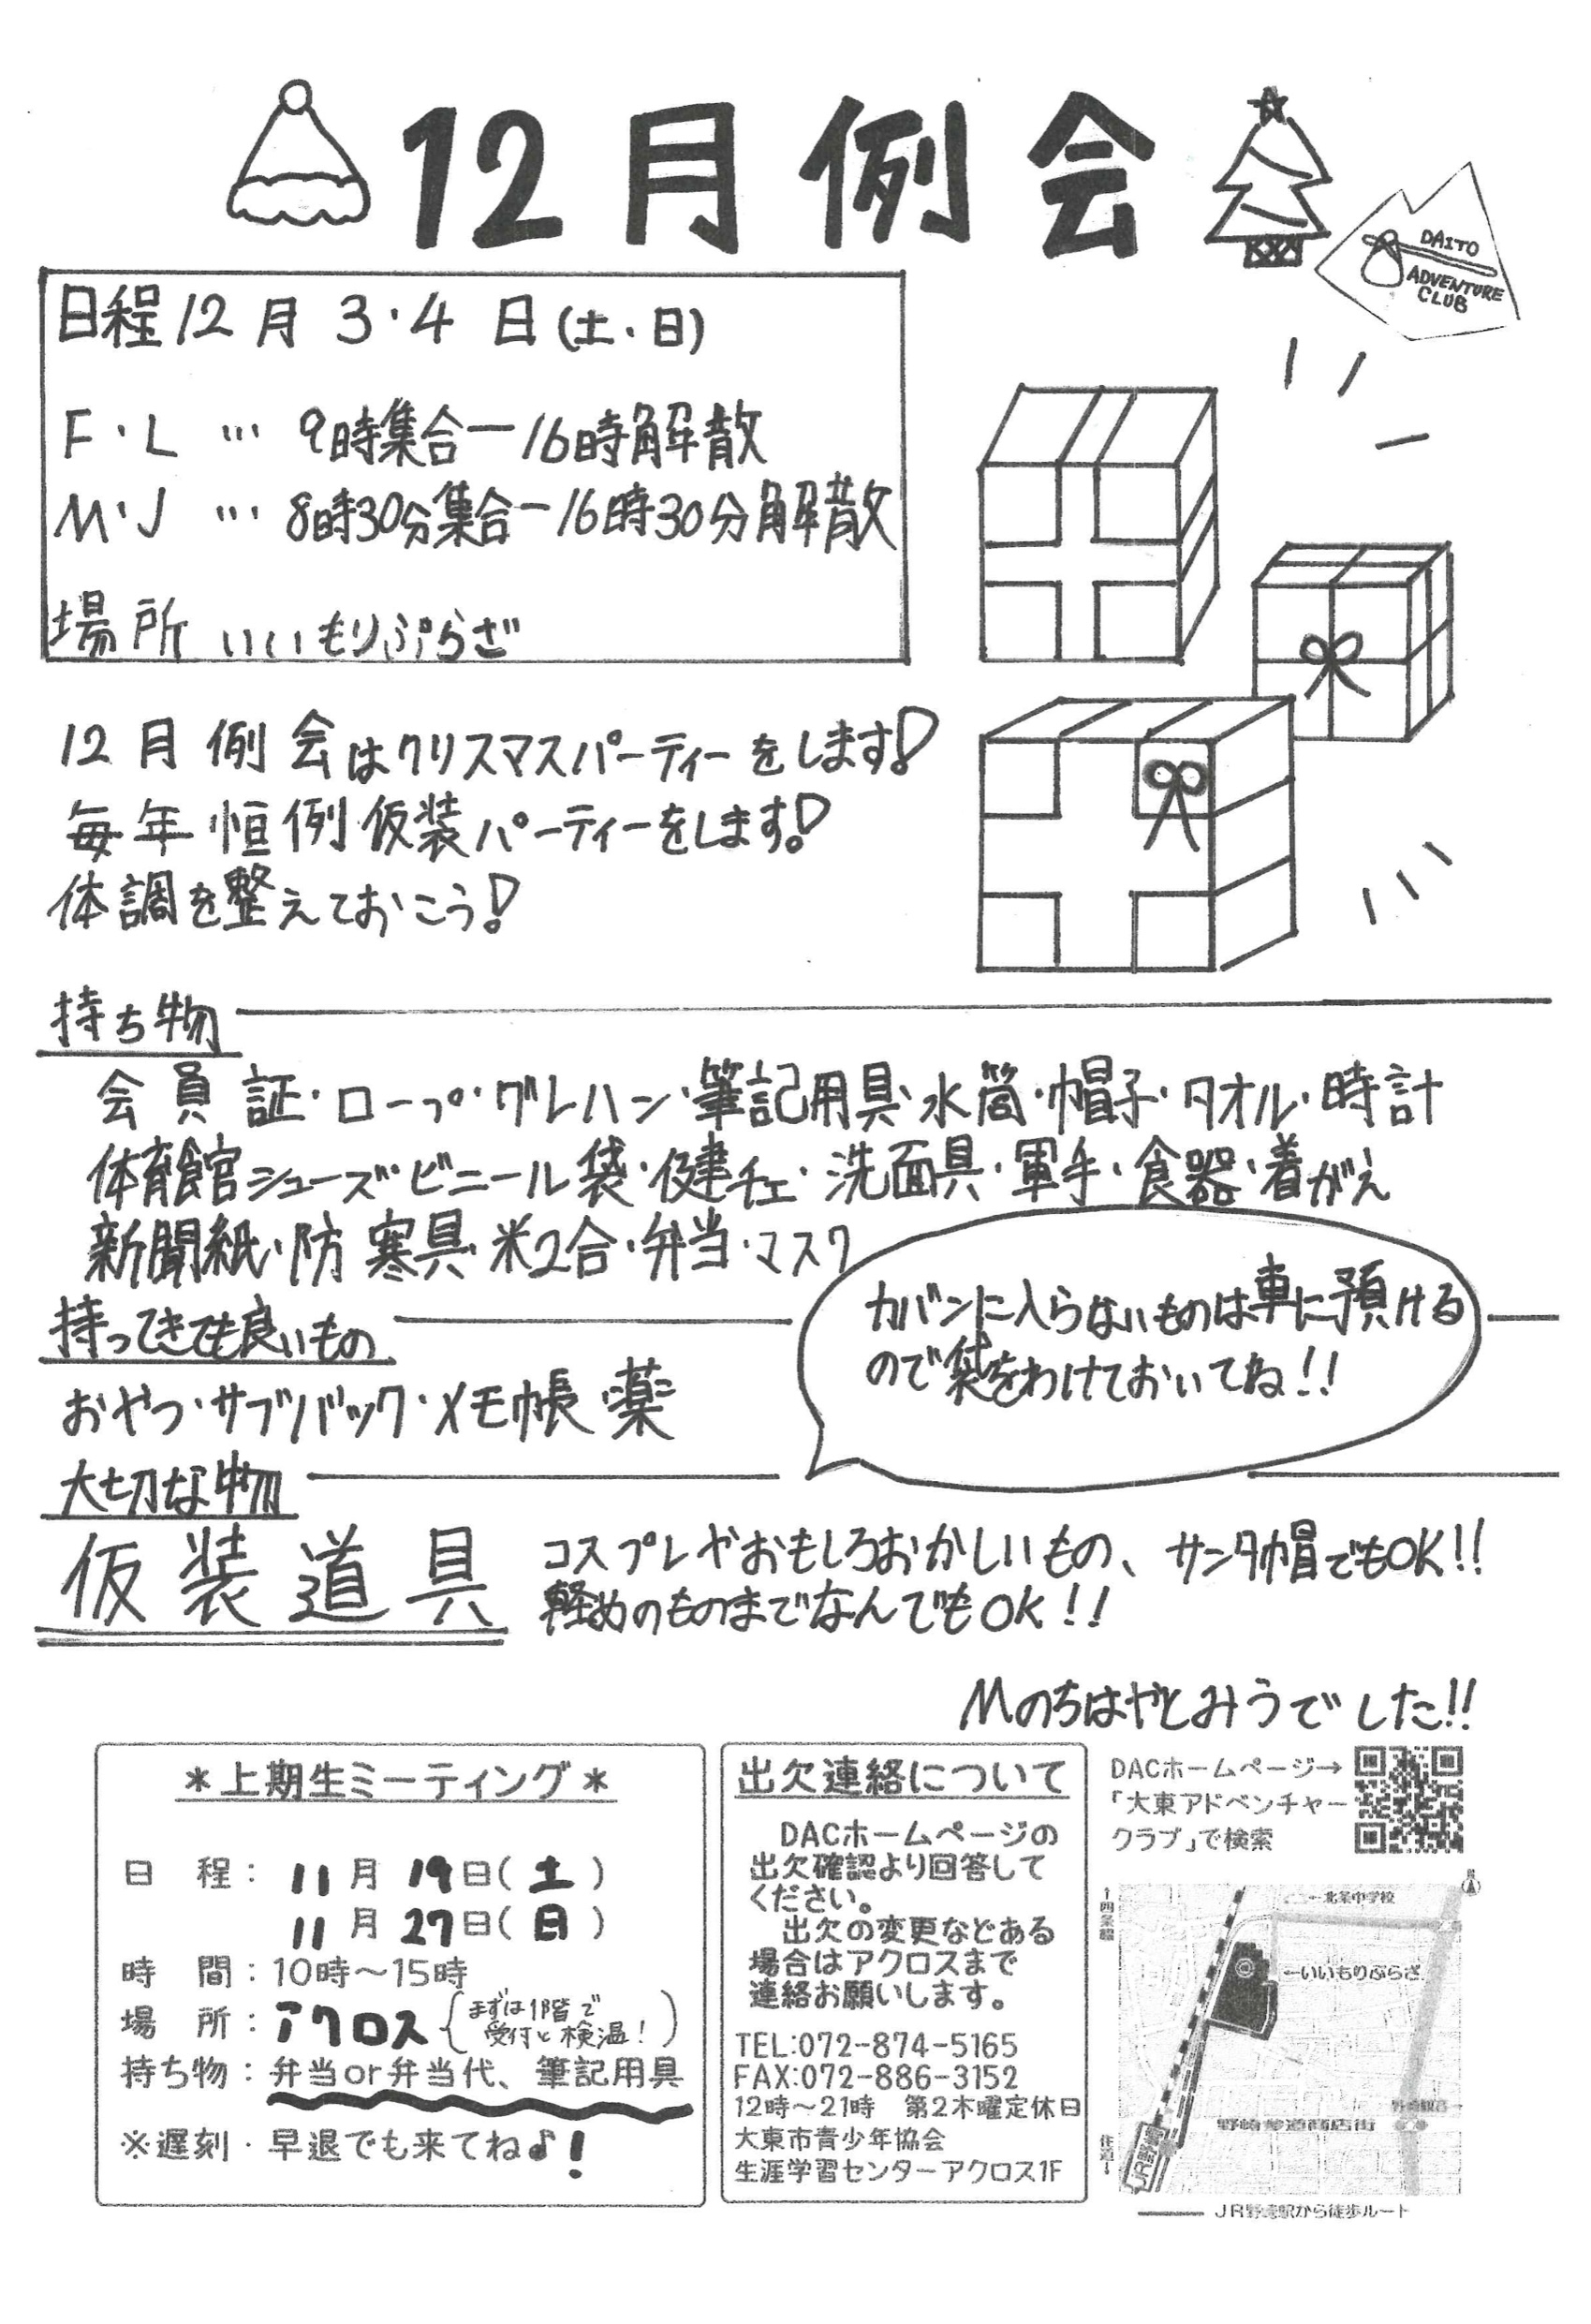 12月例会
DAITO
ADVENTURE
CLUB
日程 12月 3・4 日(土・日)
F・L … 9時集合ー16時解散
M・J … 8時30分集合ー16時30分解散
場所 いいもりぷらざ
12月例会はクリスマスパーティーをします!
毎年恒例仮装パーティーをします!
体調を整えておこう!
持ち物
会員証・ロープ・グレハン・筆記用具・水筒・帽子・タオル・時計
体育館シューズ・ビニール袋・健チェ・洗面具・軍手・食器・着がえ
新聞紙・防寒具・米2合・弁当・マスク
カバンに入らないものは車に預ける
ので袋をわけておいてね!!
持ってきても良いもの
おやつ・サブバック・メモ帳・薬
大切な物
仮装道具
コスプレやおもしろおかしいもの、サンタ帽でもOK!!
軽めのものまでなんでもOK!!
Mのちはやとみうでした!!
*上期生ミーティング*
日 程: 11月 19日(土)
11月 27日(日)
時 間:10時~15時
場 所:アクロス(まずは1階で
受付と検温!)
持ち物:弁当or弁当代、筆記用具
※遅刻・早退でも来てね♪!
出欠連絡について
DACホームページの
出欠確認より回答して
ください。
出欠の変更などある
場合はアクロスまで
連絡お願いします。
TEL:072-874-5165
FAX:072-886-3152
12時~21時 第2木曜定休日
大東市青少年協会
生涯学習センターアクロス1F
DACホームページ→
「大東アドベンチャー
クラブ」で検索
←北条中学校
↑四条畷
←いいもりぷらざ
野崎参道商店街
住道↓
JR野崎
JR野崎駅から徒歩ルート